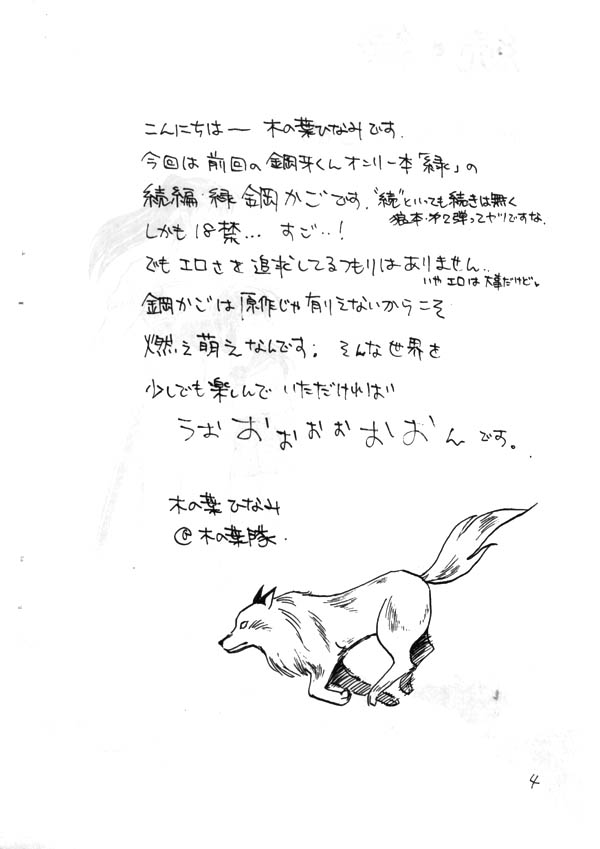 こんにちはー 木の葉ひなみです.
今回は前回の鋼牙くんオンリー本「緑」の
続編・緑 鋼かごです. "続"といっても続きは無く
狼本・第2弾ってヤツですな.
しかも18禁… すご…!
でもエロさを追求してるつもりはありません..
いやエロは大事だけど。
鋼かごは原作じゃ有りえないからこそ
燃え萌えなんです. そんな世界を
少しでも楽しんでいただければ
うおおおおおおおんです。
木の葉ひなみ
@木の葉隊.
4